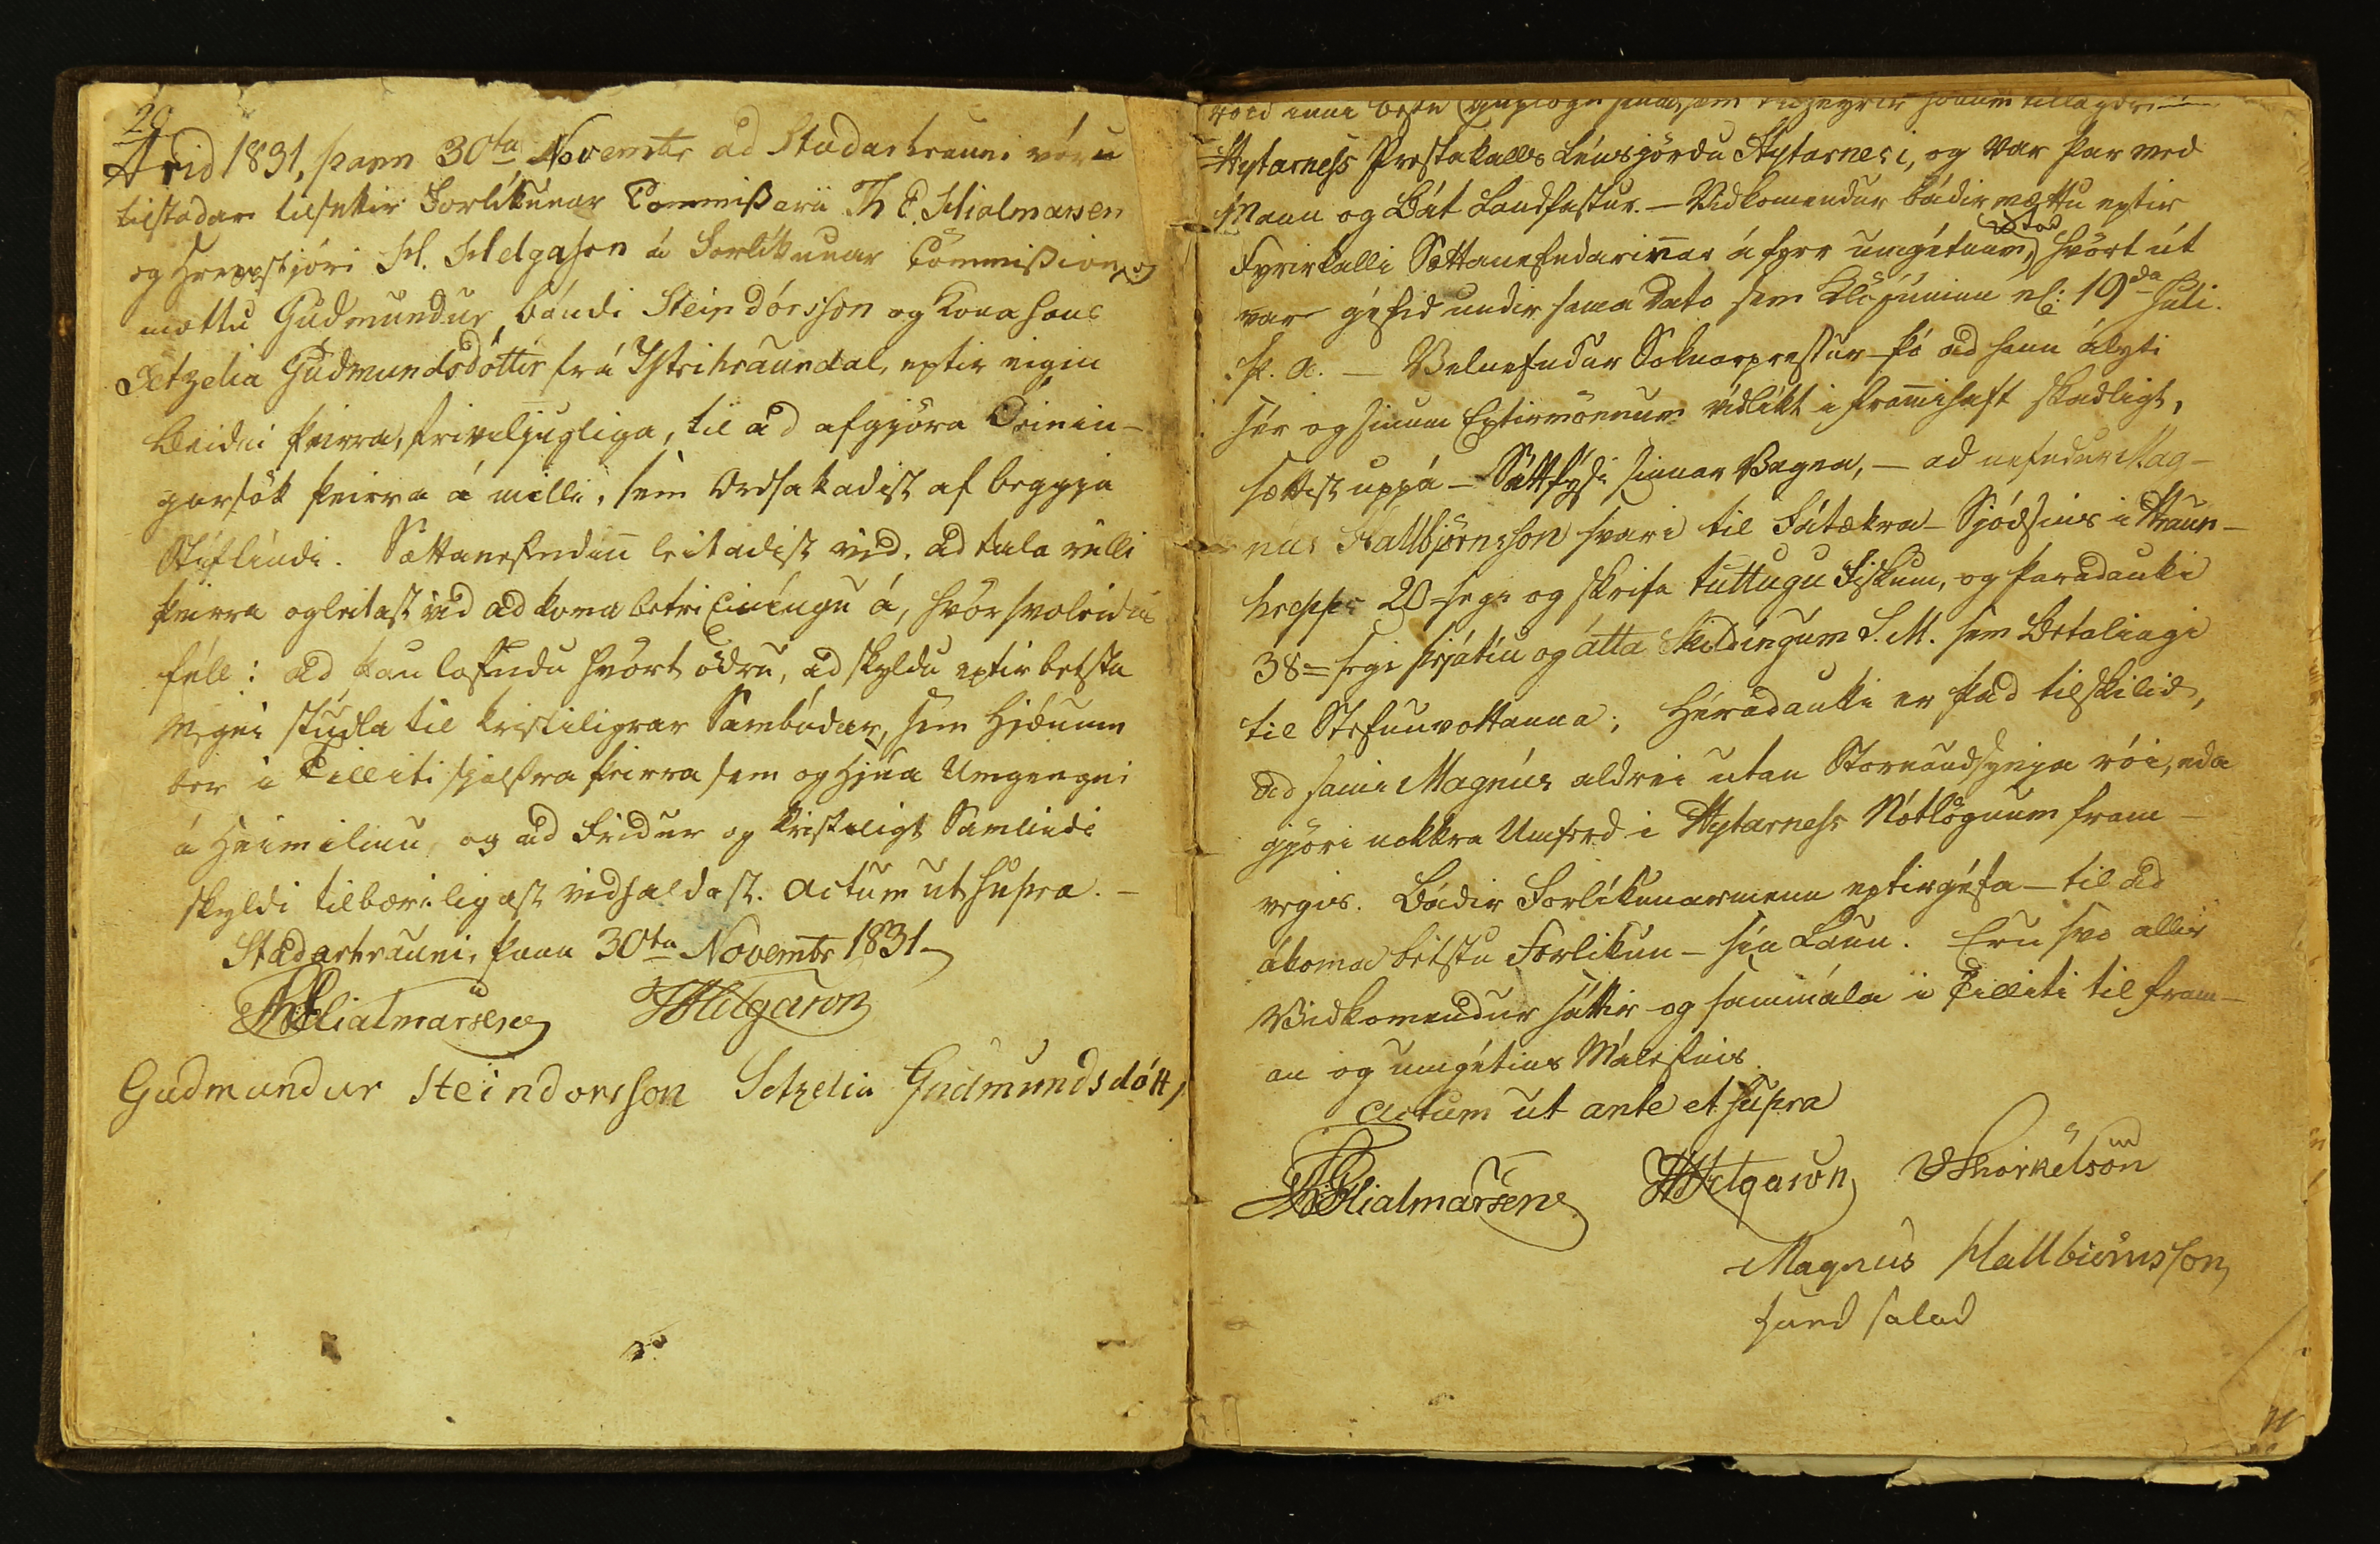 20
Arid 1831, þann 30ta Novembr ad Stadarhrauni vóru
tilstadar tilsettir Forlíkunar Commissarii Th E. Hialmarsen
og Hreppstjóri H. Helgason á Forlíkunar Commission, og
mættu Gudmundur bóndi Steindórsson og kona hans
Setzelia Gudmundsdóttir frá Ytrihraundal, eptir eigin
beidni þeirra, friviljugliga, til ad afgjöra Oeinín-
garsök þeirra á milli, sem Orsakadist af beggja
Stiflindi. Sættanefndin leitadist vid, ad tala milli
þeirra og leitast vid ad koma betri Einíngu á, hvör svoleidis
féll: ad þau lofudu hvört ödru, ad skyldu eptir besta
megni studla til kristiligrar Sambúdar, sem Hjónum
ber í Tilliti sjálfra þeirra sem og Hjúa Umgengni
á Heimilinu og ad Fridur og kristiligt Samlindi
skyldi tilbæriligast vidhaldast. Actum ut supra. -
Stadarhrauni, þann 30ta Novembr 1831
ThEHialmarsen HHelgason
Gudmundur Steindorsson Setzelia Gudmundsdótt,
Hytarness Prestakalls Leusjördu Hytarnesi, og var þar med
Mann og Bát Landfastur. - Vidkomendur bádir mættu eptir
Fyrirkalli Sættanefndarinnar á fyrr umgétnum Stad, hvört út
var géfid undir sama Dato sem Klögunin nl: 19da Juli.
þ. a. - Velnefndur Soknarprestur þó ad hann áliti
sér og sinum Eptirmönnum vidlikt i framhaft skadligt,
sættist uppá - Sáttfýsi sinnar Vegna, - ad nefndur Mag-
nús Hallbjörnsson svari til Fátækra - Sjódsins i Hraun-
hrepps 20 = segi og skrifa tuttugu Fiskum, og þaradauki
38 = segi þrjátiu og átta Skildingum S. M. sem Betalingi
til Stefnuvottanna; Héradauki er þad tilskilid,
ad sami Magnús aldrei utan Stornaudsynja rói, eda
gjöri nokkra Umferd i Hytarness Nótlögnum fram-
vegis. Bádir Forlikunarmenn eptirgéfa - til ad
ákoma bestu Forlikun - sin Laun. Eru svo allir
Vidkomendur sáttir og sammála i Tilliti til fram-
an og umgétins Málefnis.
Actum ut ante et supra
ThEHialmarsen HHelgason Thorkelson
Magnus Hallbiörnsson
hand salad